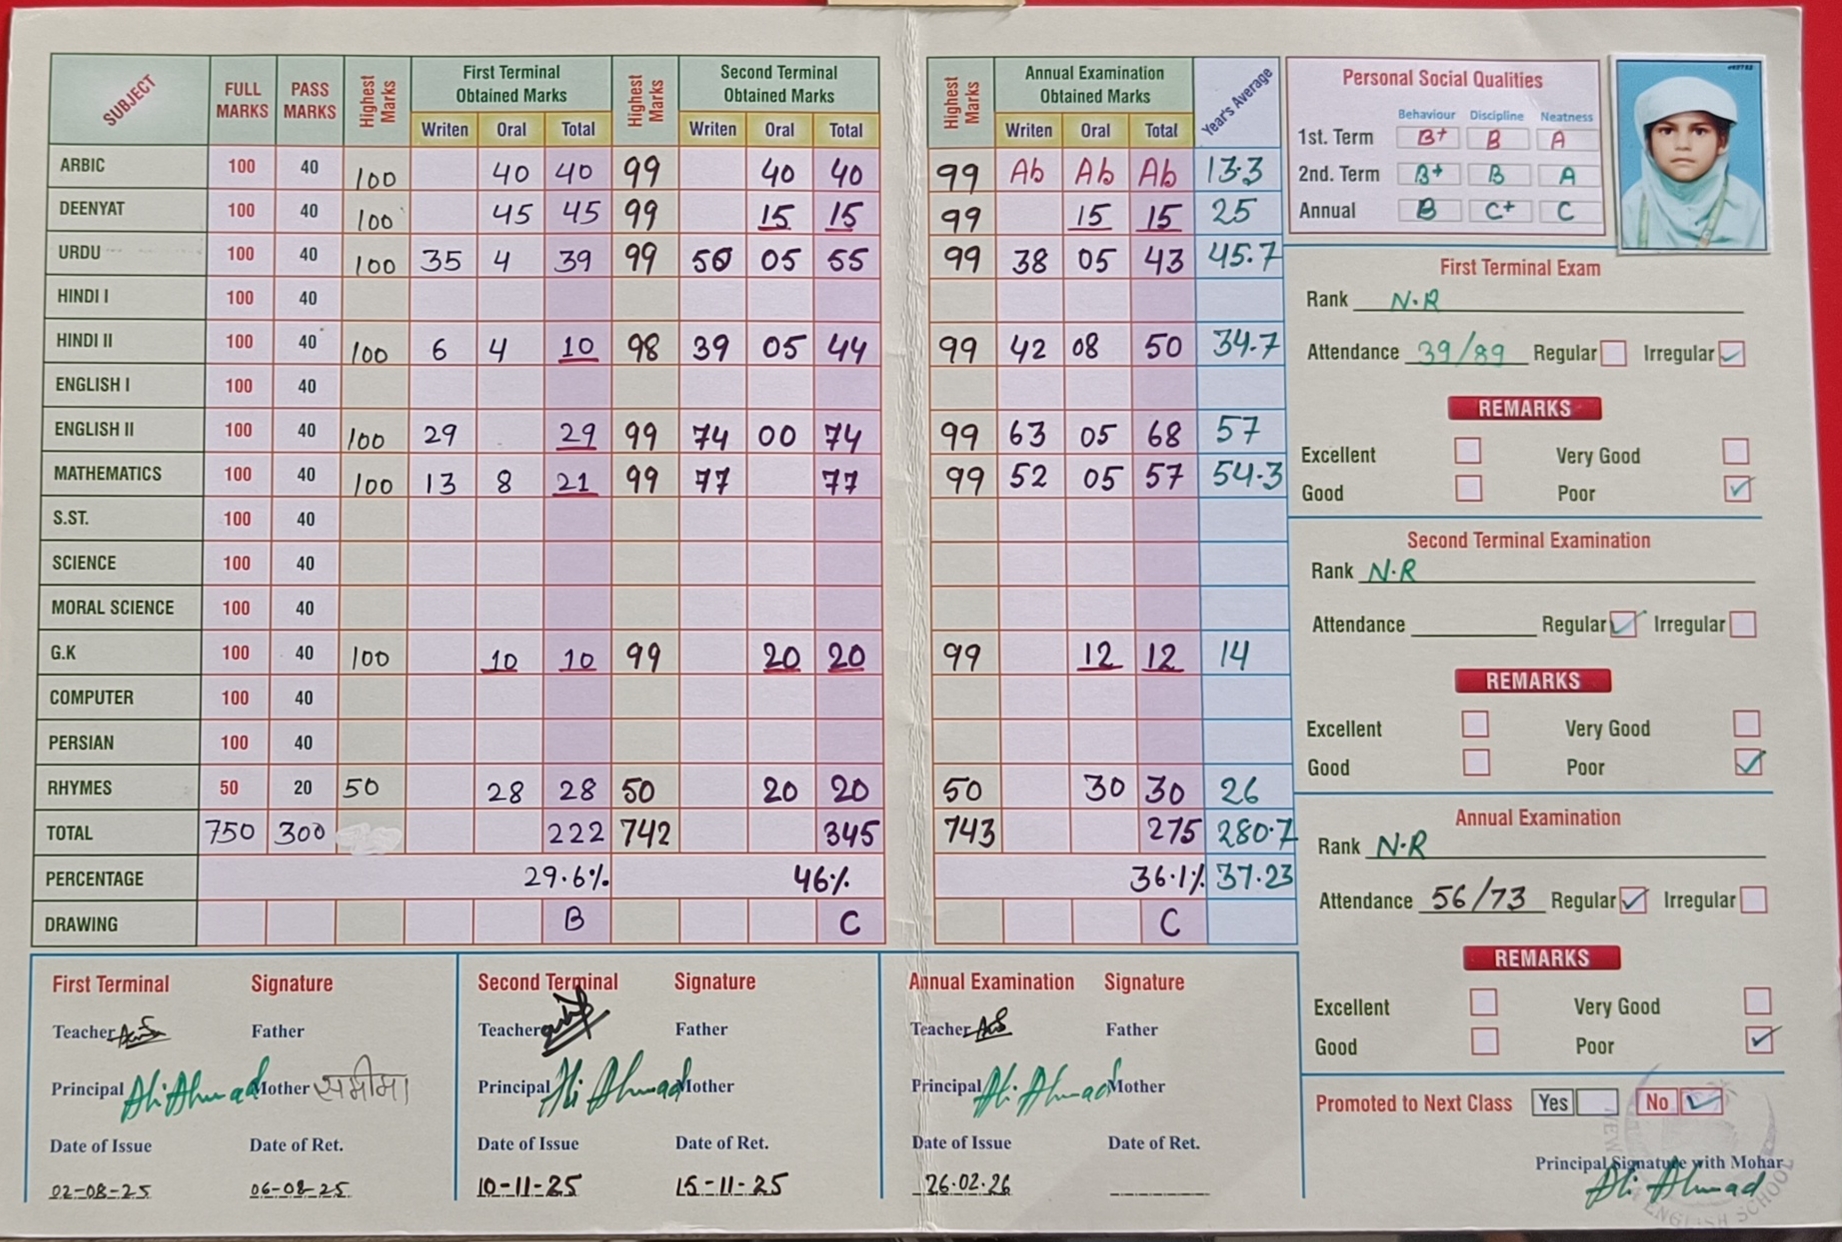 SUBJECT FULL MARKS PASS MARKS Highest Marks First Terminal Obtained Marks Highest Marks Second Terminal Obtained Marks Highest Marks Annual Examination Obtained Marks Year's Average
Writen Oral Total Writen Oral Total Writen Oral Total
ARBIC 100 40 100 40 40 99 40 40 99 Ab Ab Ab 13.3
DEENYAT 100 40 100 45 45 99 15 15 99 15 15 25
URDU 100 40 100 35 4 39 99 50 05 55 99 38 05 43 45.7
HINDI I 100 40
HINDI II 100 40 100 6 4 10 98 39 05 44 99 42 08 50 34.7
ENGLISH I 100 40
ENGLISH II 100 40 100 29 29 99 74 00 74 99 63 05 68 57
MATHEMATICS 100 40 100 13 8 21 99 77 77 99 52 05 57 54.3
S.ST. 100 40
SCIENCE 100 40
MORAL SCIENCE 100 40
G.K 100 40 100 10 10 99 20 20 99 12 12 14
COMPUTER 100 40
PERSIAN 100 40
RHYMES 50 20 50 28 28 50 20 20 50 30 30 26
TOTAL 750 300 222 742 345 743 275 280.7
PERCENTAGE 29.6% 46% 36.1% 37.23
DRAWING B C C
Personal Social Qualities
Behaviour Discipline Neatness
1st. Term B+ B A
2nd. Term B+ B A
Annual B C+ C
First Terminal Exam
Rank N.R
Attendance 39/89 Regular Irregular
REMARKS
Excellent Very Good
Good Poor
Second Terminal Examination
Rank N.R
Attendance Regular Irregular
REMARKS
Excellent Very Good
Good Poor
Annual Examination
Rank N.R
Attendance 56/73 Regular Irregular
REMARKS
Excellent Very Good
Good Poor
Promoted to Next Class Yes No
Principal Signature with Mohar
Ali Ahmad
NEW ENGLISH SCHOOL
First Terminal Signature
Teacher Father
Principal Ali Ahmad Mother समीमा
Date of Issue Date of Ret.
02-08-25 06-08-25
Second Terminal Signature
Teacher Father
Principal Ali Ahmad Mother
Date of Issue Date of Ret.
10-11-25 15-11-25
Annual Examination Signature
Teacher Father
Principal Ali Ahmad Mother
Date of Issue Date of Ret.
26.02.26